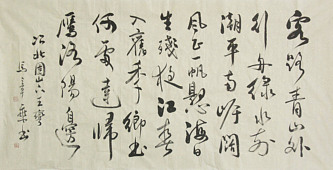 客路青山外
行舟綠水前
潮平兩岸闊
風正一帆懸海日
生殘夜江春
入舊年鄉書
何處達歸
雁洛陽邊
次北固山下王灣
書